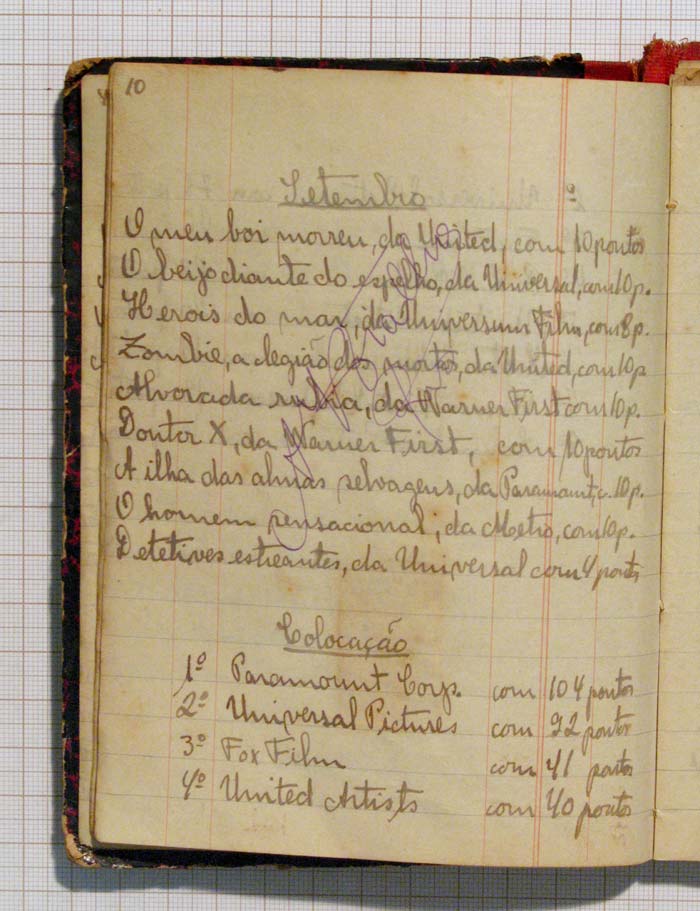 10
Setembro
O meu boi morreu, da United, com 10 pontos
O beijo diante do espelho, da Universal, com 10 p.
Herois do mar, da Universum Film, com 8 p.
Zombie, a legião dos mortos, da United, com 10 p
Alvorada rubra, da Warner First com 10 p.
Doutor X, da Warner First, com 10 pontos
A ilha das almas selvagens, da Paramount, c. 10 p.
O homem sensacional, da Metro, com 10 p.
Detetives estreantes, da Universal com 4 ponts
Colocação
1º Paramount Corp. com 104 pontos
2º Universal Pictures com 92 pontos
3º Fox Film com 41 pontos
4º United Artists com 40 pontos